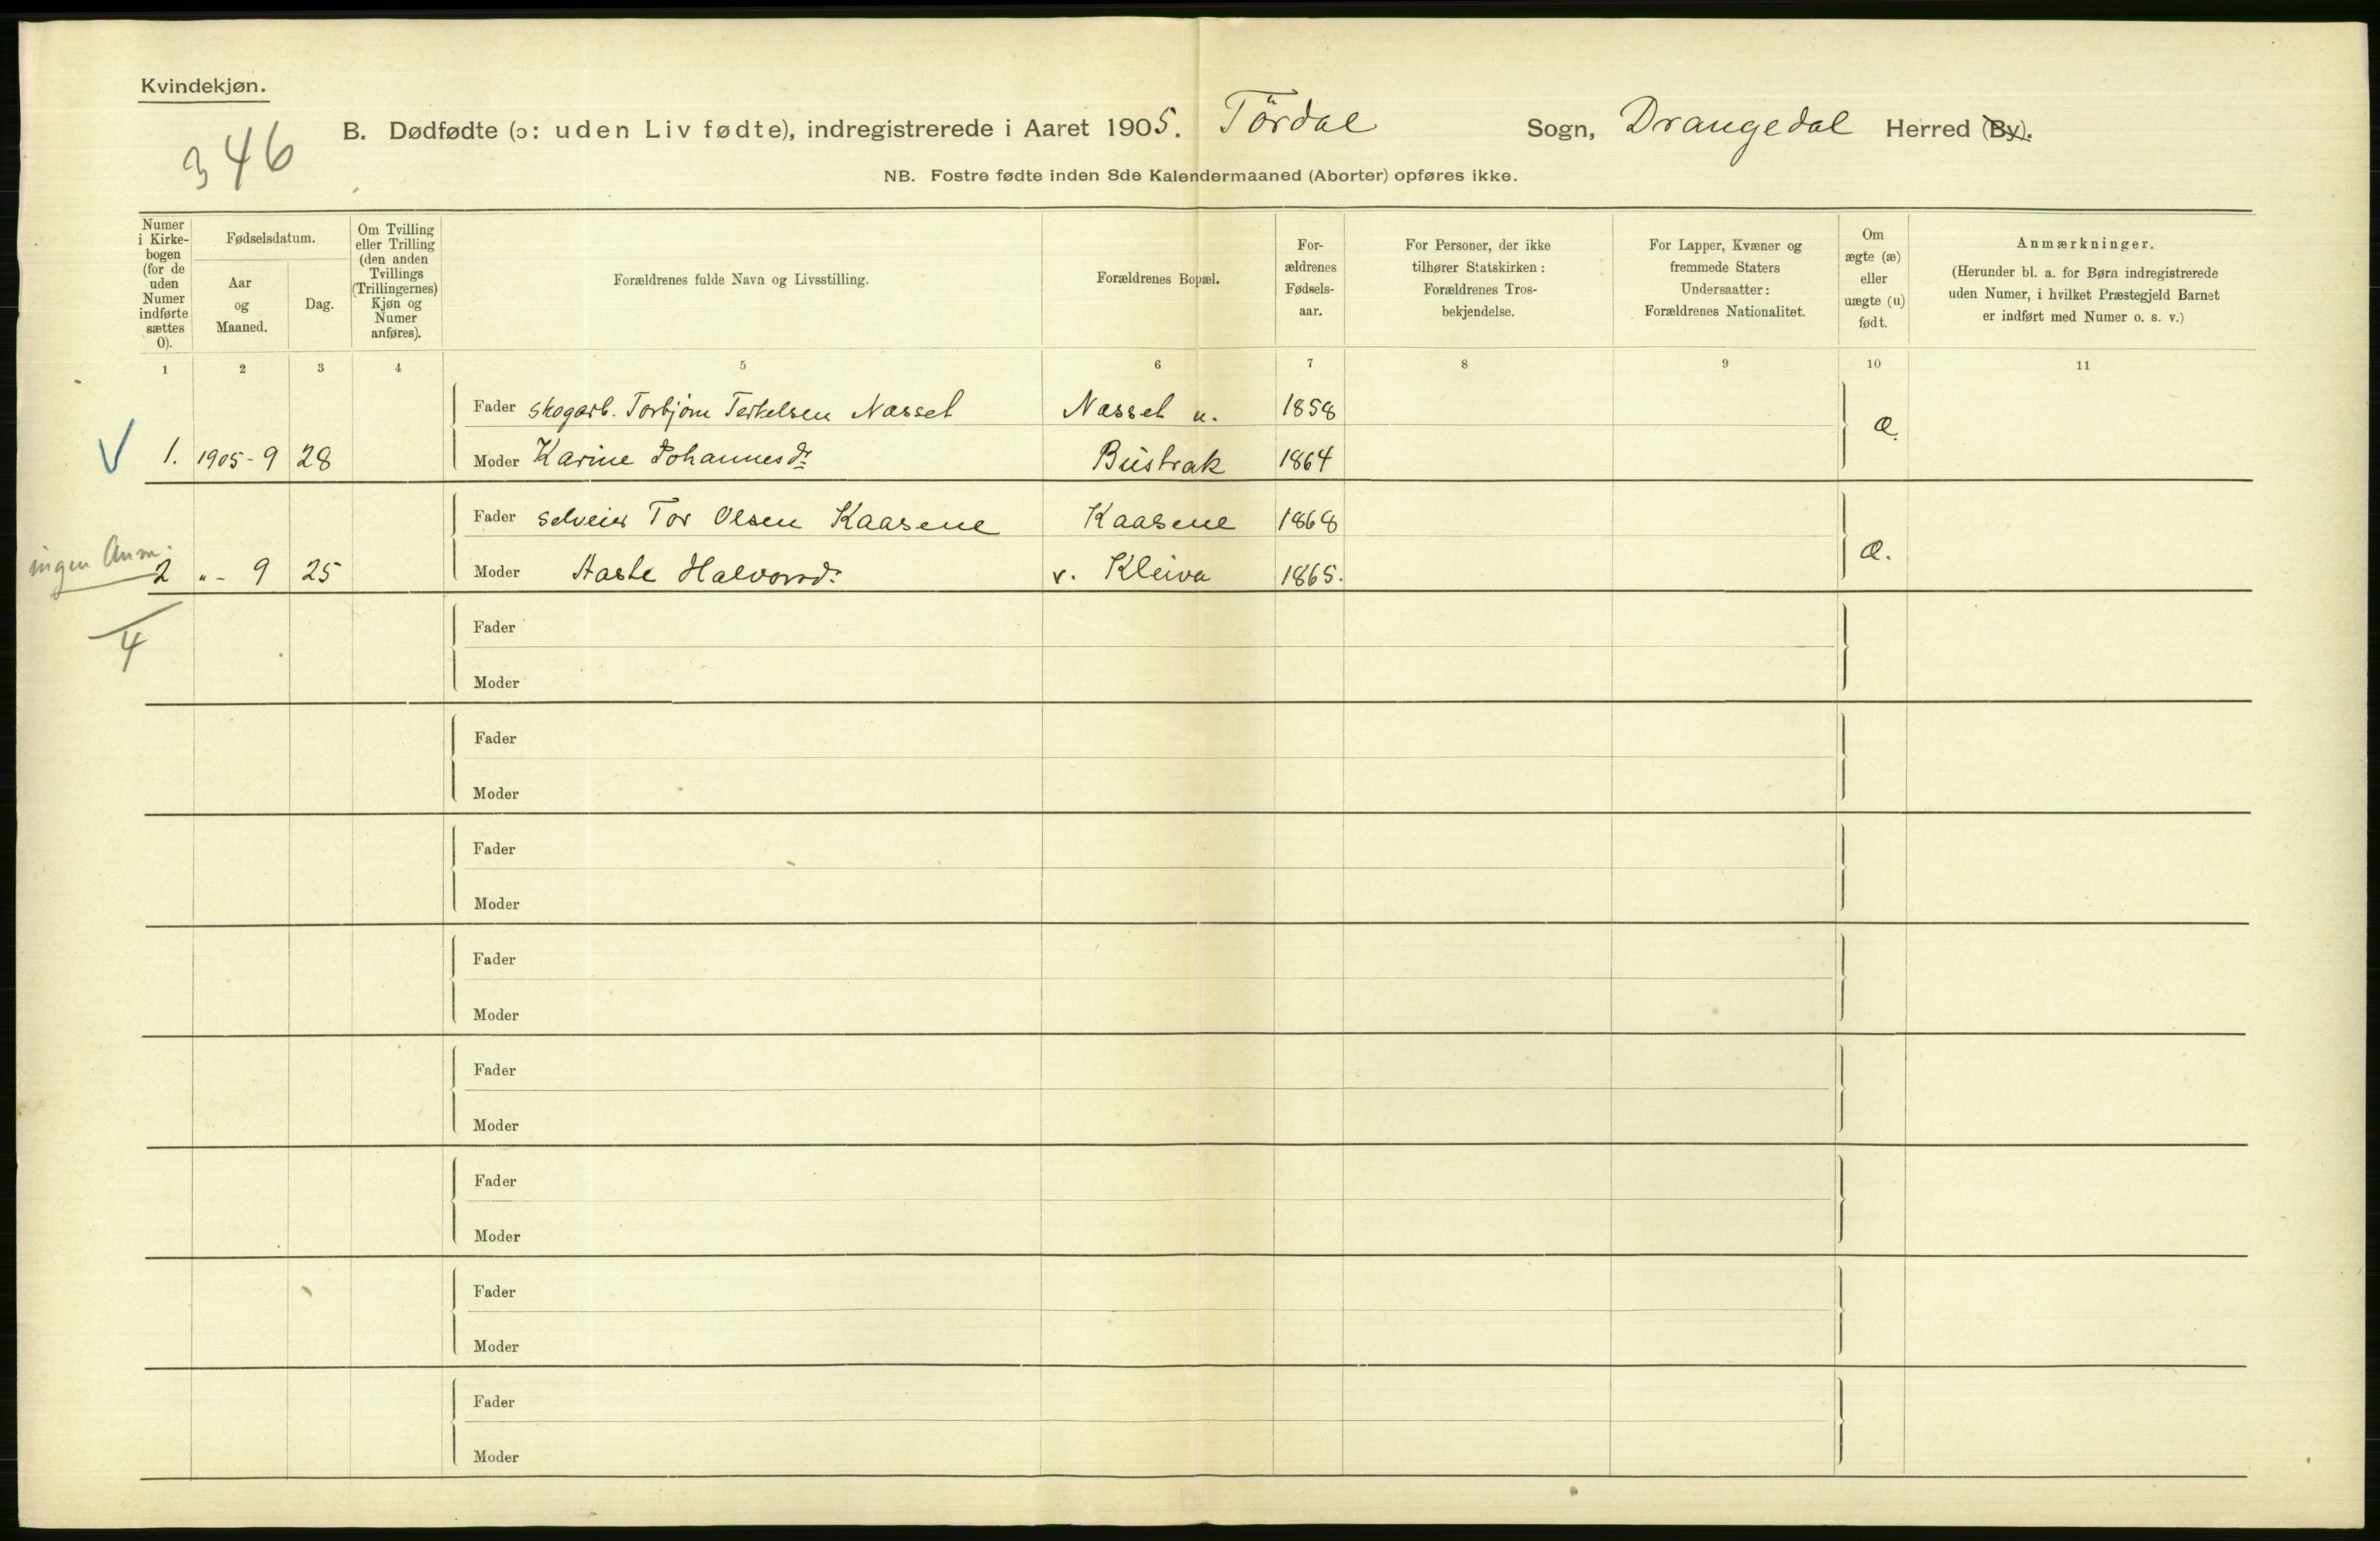 Kvindekjøn.
346
B. Dødfødte (ɔ: uden Liv fødte), indregistrerede i Aaret 1905. Tördal Sogn, Drangedal Herred (By).
NB. Fostre fødte inden 8de Kalendermaaned (Aborter) opføres ikke.
Numer i Kirke-bogen (for de uden Numer indførte sættes 0).
Fødselsdatum.
Aar og Maaned.
Dag.
Om Tvilling eller Trilling (den anden Tvillings (Trillingernes) Kjøn og Numer anføres).
Forældrenes fulde Navn og Livsstilling.
Forældrenes Bopæl.
For-ældrenes Fødsels-aar.
For Personer, der ikke tilhører Statskirken: Forældrenes Tros-bekjendelse.
For Lapper, Kvæner og fremmede Staters Undersaatter: Forældrenes Nationalitet.
Om ægte (æ) eller uægte (u) født.
Anmærkninger.
(Herunder bl. a. for Børn indregistrerede uden Numer, i hvilket Præstegjeld Barnet er indført med Numer o. s. v.)
1 2 3 4 5 6 7 8 9 10 11
Fader skogarb. Torbjörn Terkelsen Næsset Næsset u. 1858 æ.
V 1. 1905-9 28 Moder Karine Johannesdr. Bustrak 1864
Fader selveier Tor Olsen Kaasene Kaasene 1868 æ.
ingen Anm.
2 " - 9 25 Moder Aaste Halvorsd. v. Kleiva 1865.
4
Fader
Moder
Fader
Moder
Fader
Moder
Fader
Moder
Fader
Moder
Fader
Moder
Fader
Moder
Fader
Moder